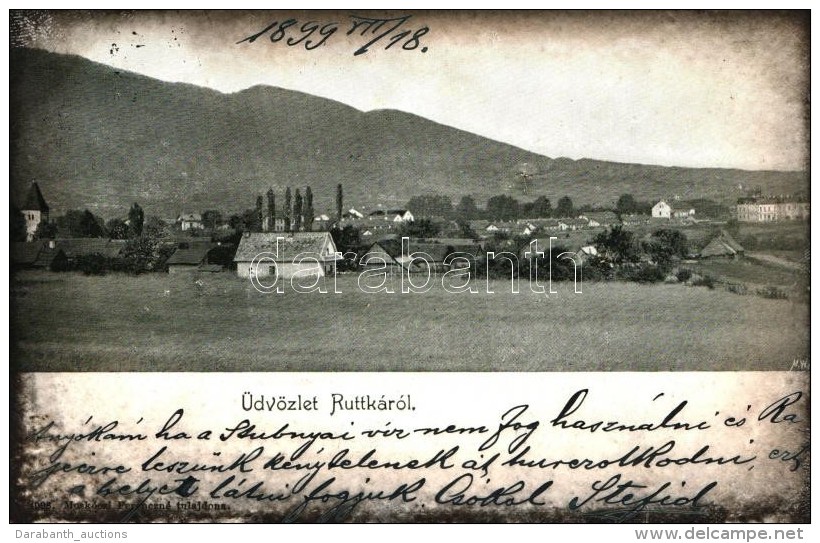 1899 VII/18.
darabanth
M.W.
Üdvözlet Ruttkáról.
Anyókám ha a Stubnyai víz nem fog használni és Ra
jecire leszünk kénytelenek át hurcolkodni, ezt
a helyet látni fogjuk. Csókol Stefid
Moskóczi Ferenczné tulajdona.
Darabanth_auctions
http://www.delcampe.net